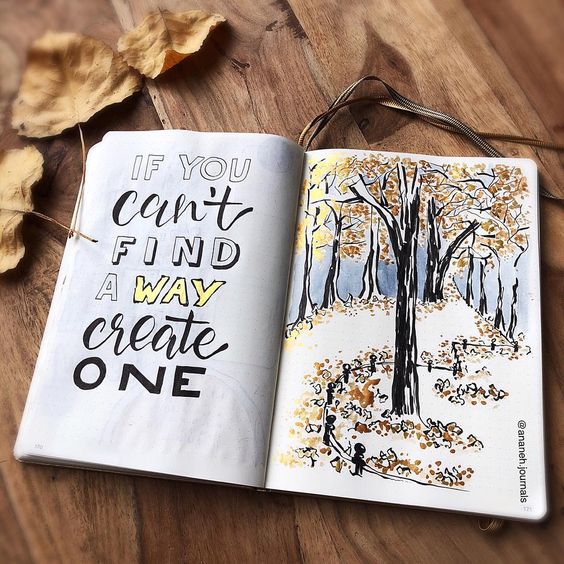 IF YOU
can't
FIND
A WAY
create
ONE
170
@ananeh.journals
171